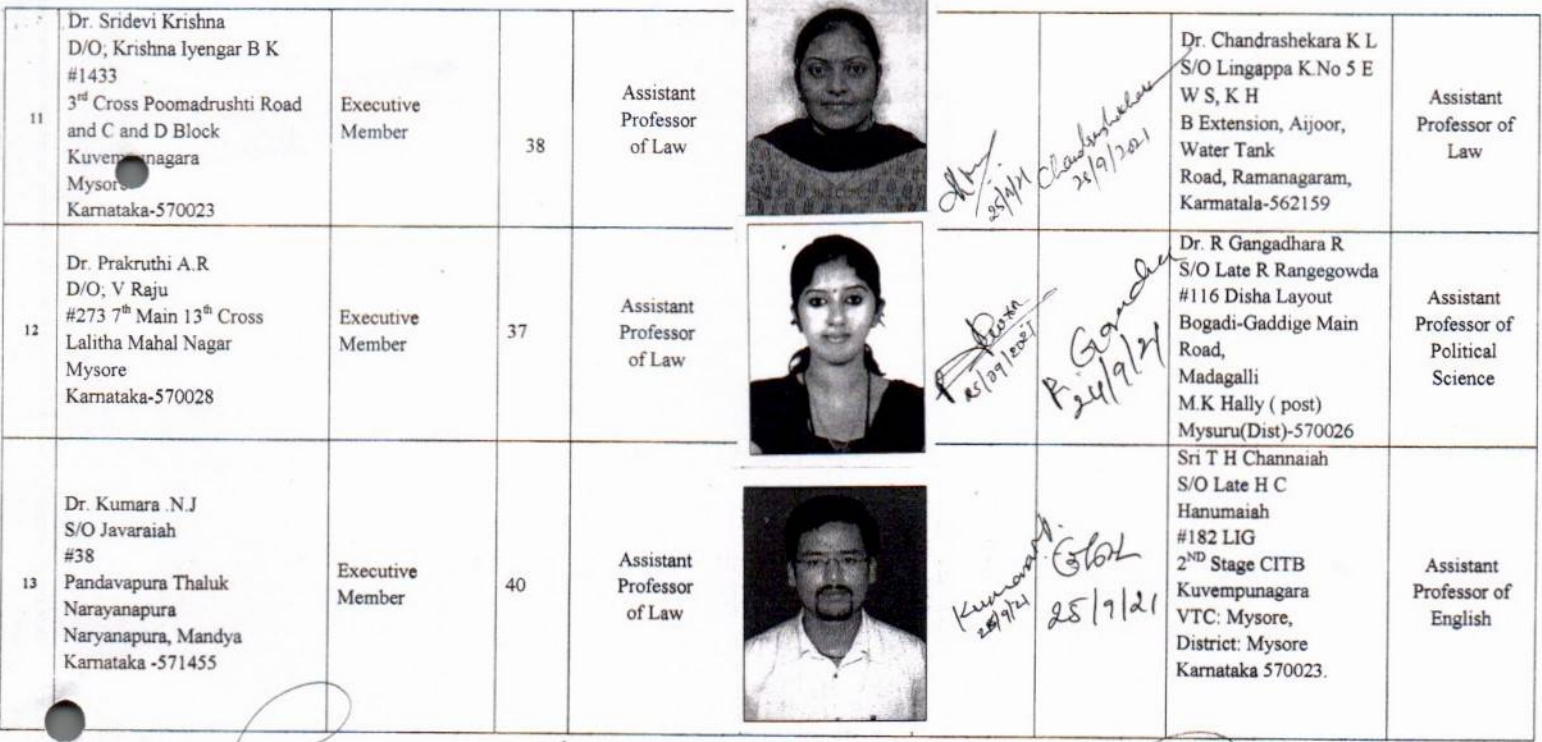 11
Dr. Sridevi Krishna
D/O; Krishna Iyengar B K
#1433
3rd Cross Poornadrushti Road
and C and D Block
Mysore
Karnataka-570023
Executive
Member
38
Assistant
Professor
of Law
25/9/21
Chandrashekhara
25/9/2021
Dr. Chandrashekara K L
S/O Lingappa K.No 5 E
W S, K H
B Extension, Aijoor,
Water Tank
Road, Ramanagaram,
Karmatala-562159
Assistant
Professor of
Law
12
Dr. Prakruthi A.R
D/O; V Raju
#273 7th Main 13th Cross
Lalitha Mahal Nagar
Mysore
Karnataka-570028
Executive
Member
37
Assistant
Professor
of Law
25/09/2021
24/9/21
Dr. R Gangadhara R
S/O Late R Rangegowda
#116 Disha Layout
Bogadi-Gaddige Main
Road,
Madagalli
M.K Hally ( post)
Mysuru(Dist)-570026
Assistant
Professor of
Political
Science
13
Dr. Kumara .N.J
S/O Javaraiah
#38
Pandavapura Thaluk
Narayanapura
Naryanapura, Mandya
Karnataka -571455
Executive
Member
40
Assistant
Professor
of Law
25/9/21
Sri T H Channaiah
S/O Late H C
Hanumaiah
#182 LIG
2ND Stage CITB
Kuvempunagara
VTC: Mysore,
District: Mysore
Karnataka 570023.
Assistant
Professor of
English